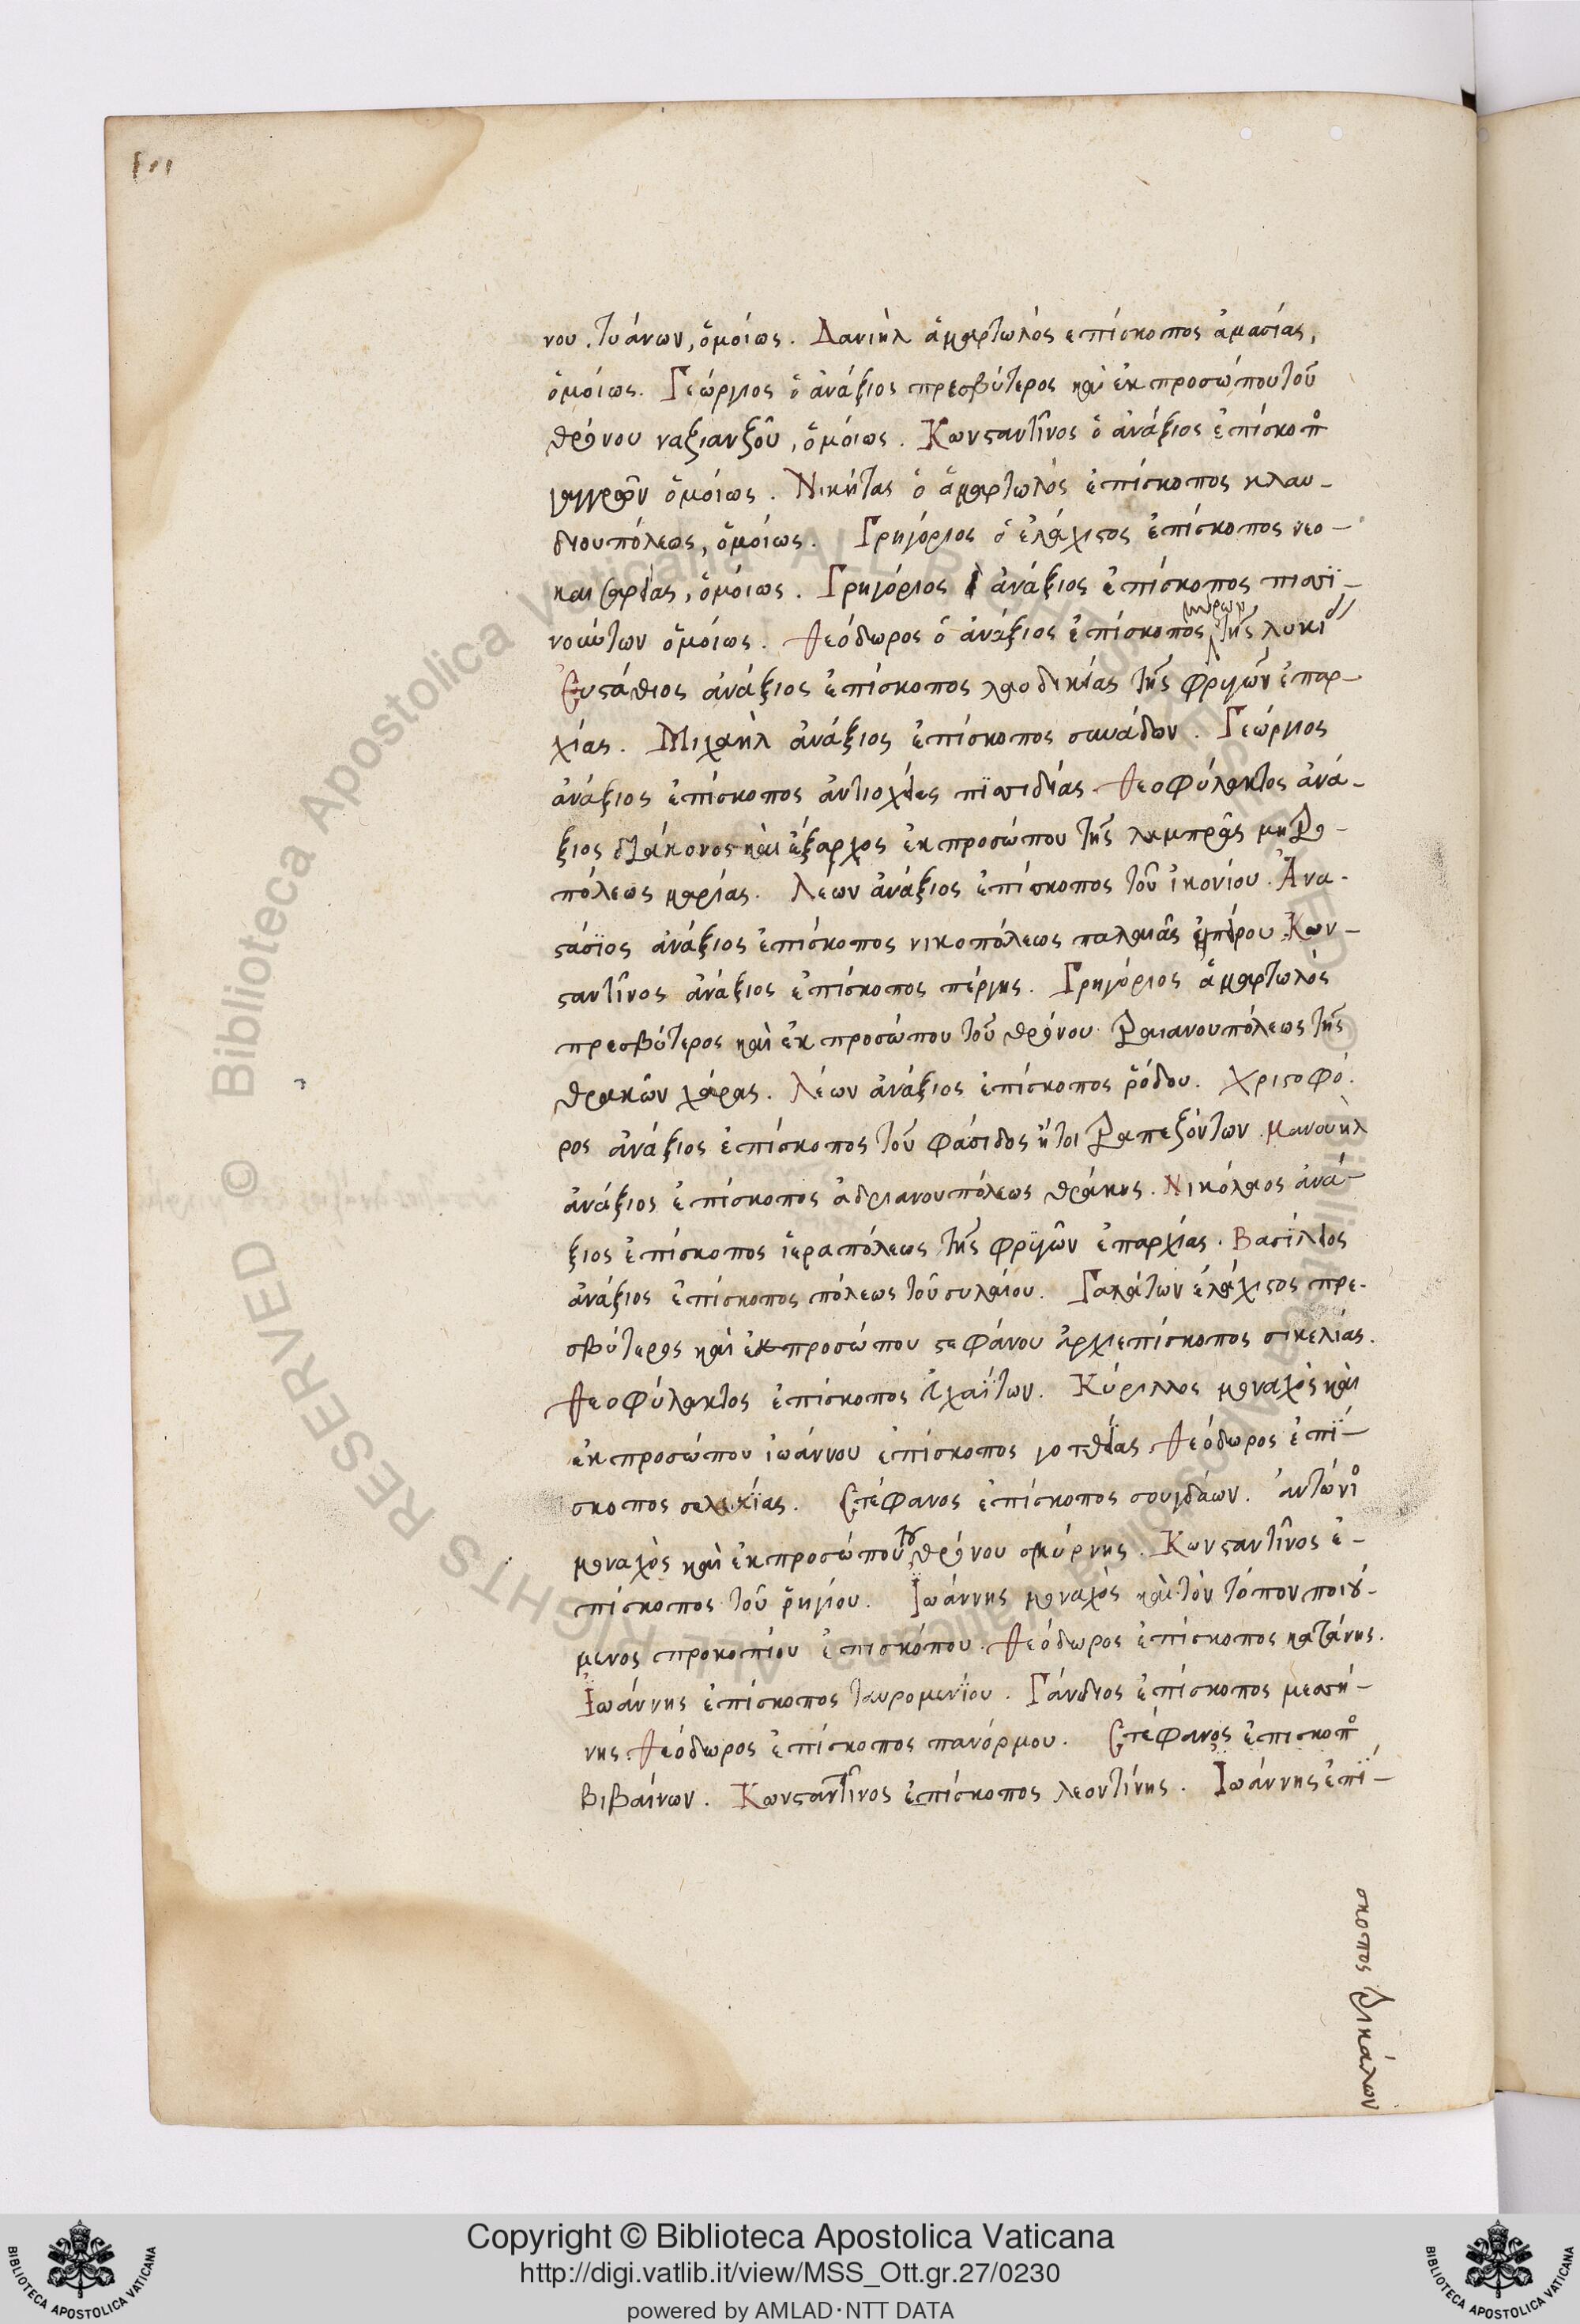 νου. τυάνων, ὁμοίως. Δανιὴλ ἁμαρτωλός επίσκοπος ἀμασίας,
ὁμοίως. Γεώργιος ὁ ἀνάξιος πρεσβύτερος καὶ ἐκ προσώπου τοῦ
θρόνου ναζιανζοῦ, ὁμοίως. Κωνσταντῖνος ὁ ἀνάξιος ἐπίσκοπ
γαγγρῶν ὁμοίως. Νικήτας ὁ ἁμαρτωλὸς ἐπίσκοπος κλαυ-
διουπόλεως, ὁμοίως. Γρηγόριος ὁ ἐλάχιστος ἐπίσκοπος νεο-
καισαρείας, ὁμοίως. Γρηγόριος ὁ ἀνάξιος ἐπίσκοπος πισϊ-
νούντων ὁμοίως. Θεόδωρος ὁ ἀνάξιος ἐπίσκοπος μύρων τῆς λυκί
Εὐστάθιος ἀνάξιος ἐπίσκοπος λαοδικείας τῆς φρυγῶν ἐπαρ-
χίας. Μιχαὴλ ἀνάξιος ἐπίσκοπος συνάδων. Γεώργιος
ἀνάξιος ἐπίσκοπος ἀντιοχείας πϊσιδίας. Θεοφύλακτος ἀνά-
ξιος διάκονος καὶ ἔξαρχος ἐκ προσώπου τῆς λαμπρᾶς μητρο-
πόλεως καρίας. Λέων ἀνάξιος ἐπίσκοπος τοῦ ἰκονίου. Ἀνα-
στάσϊος ἀνάξιος ἐπίσκοπος νικοπόλεως παλαιᾶς ἠπείρου. Κων-
σταντῖνος ἀνάξιος ἐπίσκοπος πέργης. Γρηγόριος ἁμαρτωλός
πρεσβύτερος καὶ ἐκ προσώπου τοῦ θρόνου τραιανουπόλεως τῆς
θρακῶν χώρας. Λέων ἀνάξιος ἐπίσκοπος ῥόδου. Χριστοφό-
ρος ἀνάξιος ἐπίσκοπος τοῦ φάσιδος ἤτοι τραπεζόντων. Μανουὴλ
ἀνάξιος ἐπίσκοπος ἀδριανουπόλεως θράκης. Νικόλαος ἀνά-
ξιος ἐπίσκοπος ἱεραπόλεως τῆς φρϋγῶν ἐπαρχίας. Βασίλειος
ἀνάξιος ἐπίσκοπος πόλεως τοῦ συλαίου. Γαλάτων ἐλάχιστος πρε-
σβύτερος καὶ ἐκ προσώπου στεφάνου ἀρχιεπίσκοπος σικελίας.
Θεοφύλακτος ἐπίσκοπος εὐχαΐτων. Κύριλλος μοναχὸς καὶ
ἐκ προσώπου ἰωάννου ἐπίσκοπος γοτθίας. Θεόδωρος ἐπί-
σκοπος σελευκίας. Στέφανος ἐπίσκοπος σουγδάων. ἀντώνι
μοναχὸς καὶ ἐκ προσώπου τοῦ θρόνου σμύρνης. Κωνσταντῖνος ἐ-
πίσκοπος τοῦ ῥηγίου. Ἰωάννης μοναχός καὶ τὸν τόπον ποιού-
μενος προκοπίου ἐπισκόπου. Θεόδωρος ἐπίσκοπος κατάνης.
Ἰωάννης ἐπίσκοπος ταυρομενίου. Γάνδιος ἐπίσκοπος μεσσή-
νης. Θεόδωρος ἐπίσκοπος πανόρμου. Στέφανος ἐπισκοπ
βιβαίνων. Κωνσταντῖνος ἐπίσκοπος λεοντίνης. Ἰωάννης ἐπί-
σκοπος τρικάλων
Biblioteca Apostolica Vaticana ALL RIGHTS RESERVED ©
Copyright © Biblioteca Apostolica Vaticana
http://digi.vatlib.it/view/MSS_Ott.gr.27/0230
powered by AMLAD·NTT DATA
BIBLIOTECA APOSTOLICA VATICANA
BIBLIOTECA APOSTOLICA VATICANA